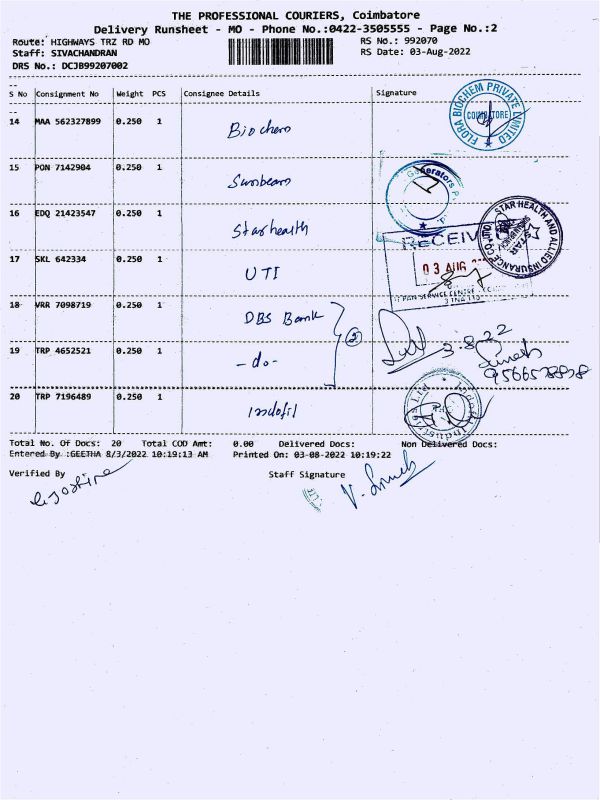 THE PROFESSIONAL COURIERS, Coimbatore
Delivery Runsheet - MO - Phone No.:0422-3505555 - Page No.:2
Route: HIGHWAYS TRZ RD MO RS No.: 992070
Staff: SIVACHANDRAN RS Date: 03-Aug-2022
DRS No.: DCJB99207002
S No Consignment No Weight PCS Consignee Details Signature
14 MAA 562327899 0.250 1 Biochem
FLORA BIOCHEM PRIVATE LIMITED
COIMBATORE
15 PON 7142904 0.250 1 Sunbeam
Generators P
16 EDQ 21423547 0.250 1 Starhealth
STAR HEALTH AND ALLIED INSURANCE CO
STAR
RECEIV
17 SKL 642334 0.250 1 UTI
03 AUG
PAN SERVICE CENTRE
18 VRR 7098719 0.250 1 DBS Bank
2
3.8.22
19 TRP 4652521 0.250 1 -do-
20 TRP 7196489 0.250 1 Indofil
Indofil Industries Ltd
Total No. Of Docs: 20 Total COD Amt: 0.00 Delivered Docs: Non Delivered Docs:
Entered By :GEETHA 8/3/2022 10:19:13 AM Printed On: 03-08-2022 10:19:22
Verified By Staff Signature